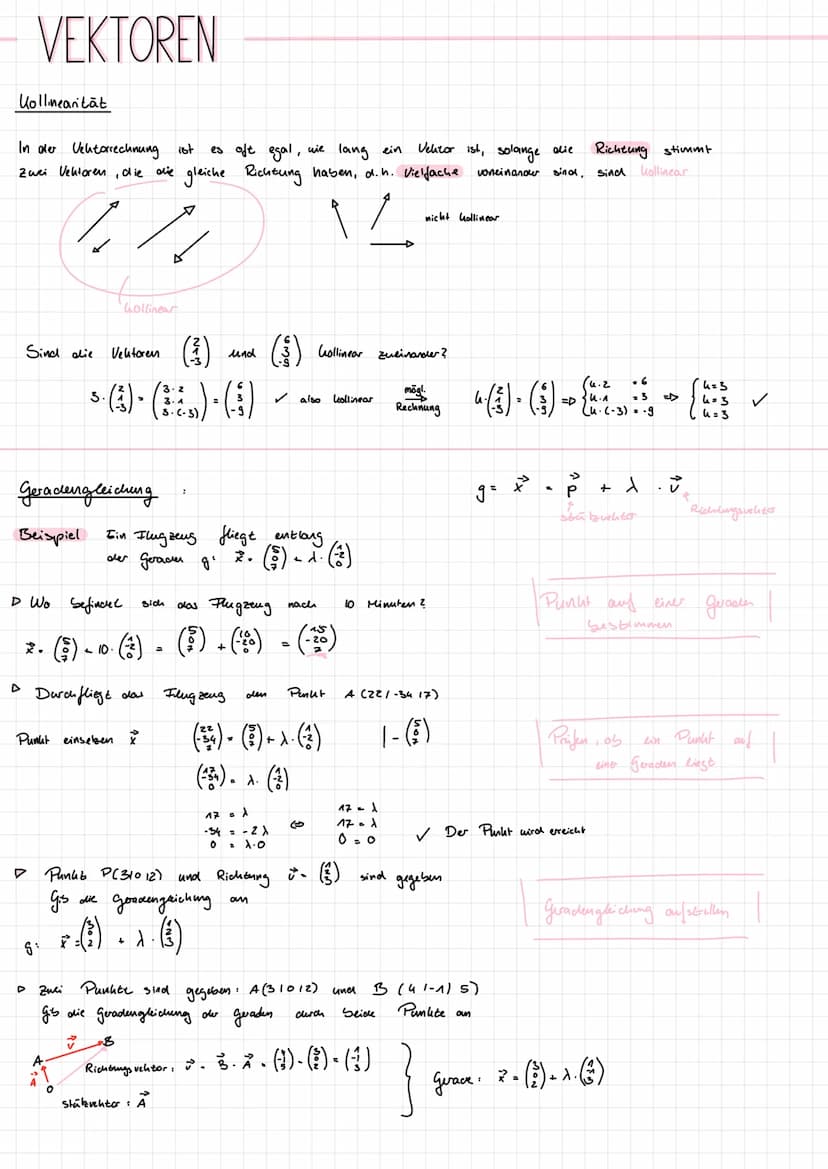 VEKTOREN
Kollinearität
In der Vektorrechnung ist es oft egal, wie lang ein Vektor ist, solange die Richtung stimmt
Zwei Vektoren, die die gleiche Richtung haben, d.h. Vielfache voneinander sind, sind kollinear
nicht kollinear
kollinear
Sind die Vektoren (2 1 -3) und (6 3 -9) kollinear zueinander?
3 · (2 1 -3) = (3·2 3·1 3·(-3)) = (6 3 -9) ✓ also kollinear mögl. Rechnung k·(2 1 -3) = (6 3 -9) => {k·2 = 6 k·1 = 3 k·(-3) = -9 => {k=3 k=3 k=3 ✓
Geradengleichung : g = x⃗ = p⃗ + λ · v⃗
Stützvektor Richtungsvektor
Beispiel Ein Flugzeug fliegt entlang
der Geraden g: x⃗ = (5 0 7) + λ·(1 -2 0)
▷ Wo befindet sich das Flugzeug nach 10 Minuten?
Punkt auf einer Geraden
bestimmen
x⃗ = (5 0 7) + 10·(1 -2 0) = (5 0 7) + (10 -20 0) = (15 -20 7)
▷ Durchfliegt das Flugzeug den Punkt A (22 | -34 | 7)
Punkt einsetzen x⃗ (22 -34 7) = (5 0 7) + λ·(1 -2 0) | - (5 0 7)
Prüfen, ob ein Punkt auf
einer Geraden liegt
(17 -34 0) = λ·(1 -2 0)
17 = λ 17 = λ
-34 = -2λ <=> 17 = λ
0 = λ·0 0 = 0 ✓ Der Punkt wird erreicht
▷ Punkt P(3|0|2) und Richtung v⃗ = (1 2 3) sind gegeben
Gib die Geradengleichung an
Geradengleichung aufstellen
g: x⃗ = (3 0 2) + λ·(1 2 3)
▷ Zwei Punkte sind gegeben: A(3|0|2) und B (4|-1|5)
Gib die Geradengleichung der Geraden durch beide Punkte an
v⃗ B
A
Richtungsvektor: v⃗ = B⃗ - A⃗ = (4 -1 5) - (3 0 2) = (1 -1 3) } Gerade: x⃗ = (3 0 2) + λ·(1 -1 3)
A⃗ O
Stützvektor: A⃗